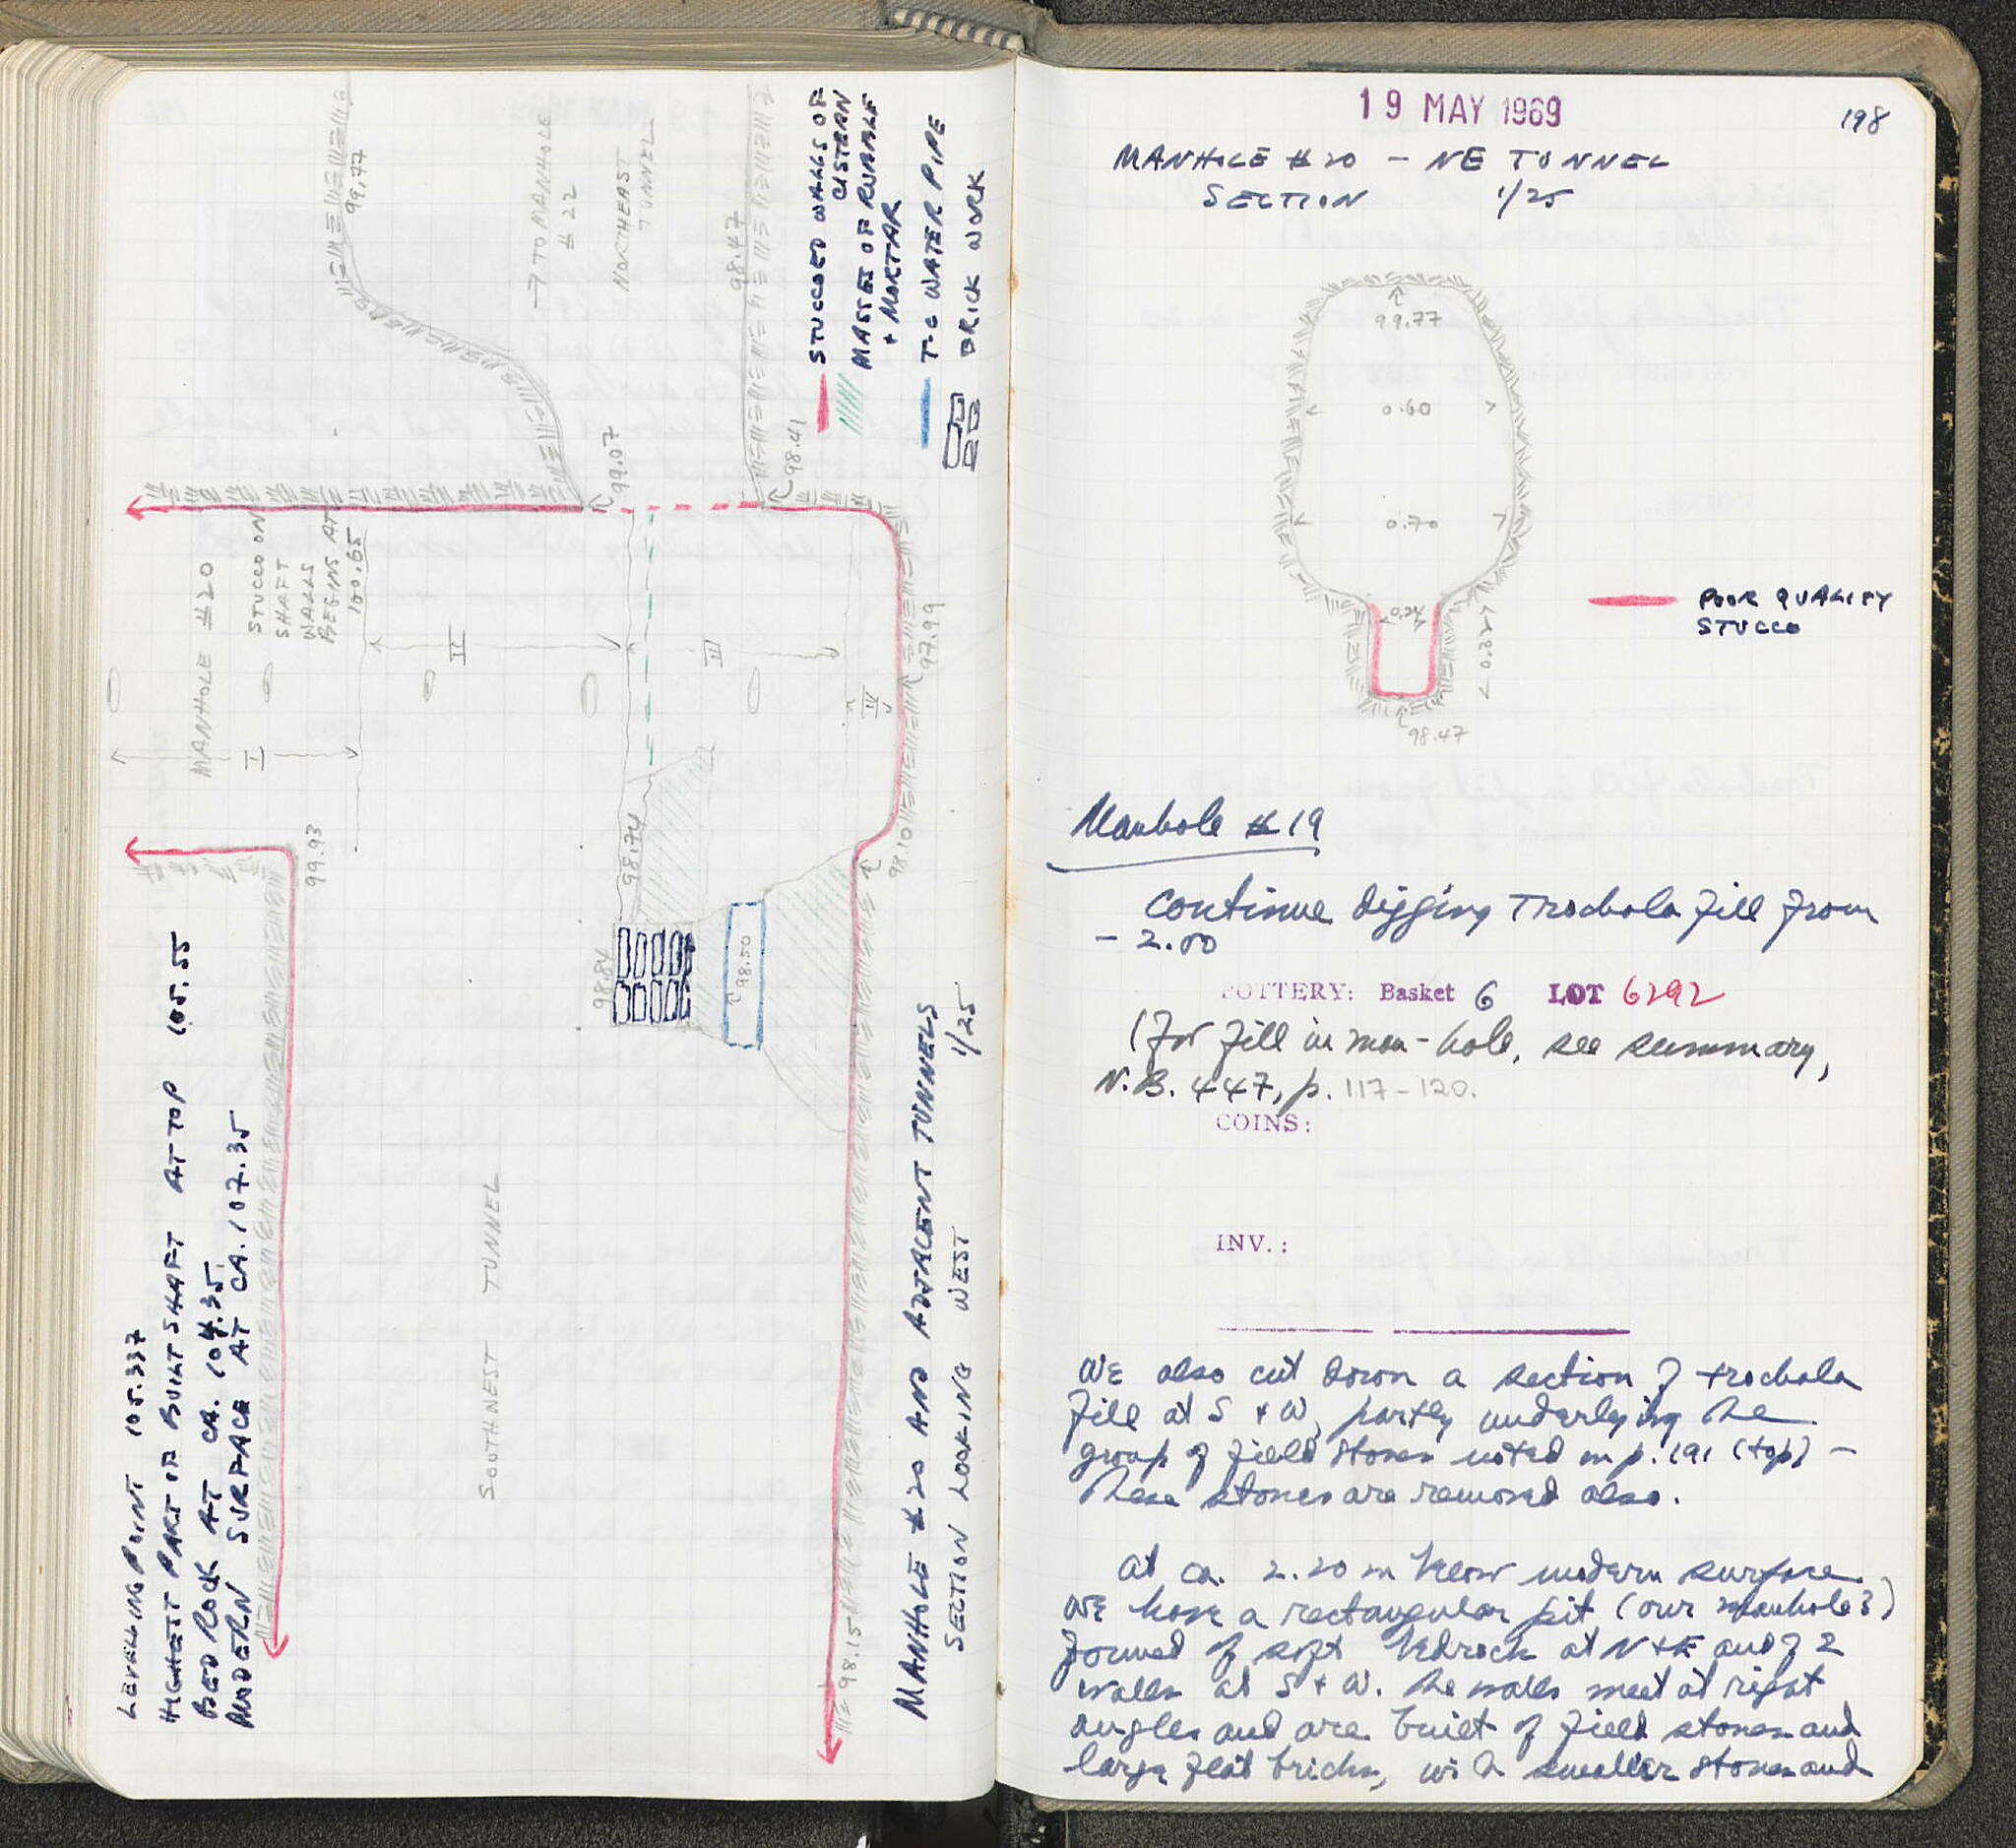 LEVELLING POINT 105.337
HIGHEST PART OF BUILT SHAFT AT TOP 105.55
BED ROCK AT CA. 104.35
MODERN SURFACE AT CA. 107.35
MANHOLE #20
STUCCO ON
SHAFT
WALLS
BEGINS AT
100.65
I
II
III
IIII
99.77
→ TO MANHOLE
#22
NORTHEAST
TUNNEL
98.47
99.07
98.41
97.99
99.93
98.74
98.10
98.84
98.50
SOUTHWEST TUNNEL
98.15
STUCCOED WALLS OF
CISTERN
MASSES OF RUBBLE
+ MORTAR
T-C WATER PIPE
BRICK WORK
MANHOLE #20 AND ADJACENT TUNNELS
SECTION LOOKING WEST 1/25
19 MAY 1969
198
MANHOLE #20 – NE TUNNEL
SECTION 1/25
99.77
0.60
0.70
0.24
0.32
98.47
POOR QUALITY
STUCCO
Manhole #19
Continue digging Trochala fill from
– 2.00
POTTERY: Basket 6 LOT 6292
(for fill in man-hole, see summary,
N.B. 447, p. 117-120.
COINS:
INV.:
We also cut down a section of trochala
fill at S + W, partly underlying the
group of field stones noted on p. 191 (top) –
these stones are removed also.
At ca. 2.20 m below modern surface
we have a rectangular pit (our manhole?)
formed of soft bedrock at N + E and of 2
walls at S + W. The walls meet at right
angles and are built of field stones and
large flat bricks, with smaller stones and